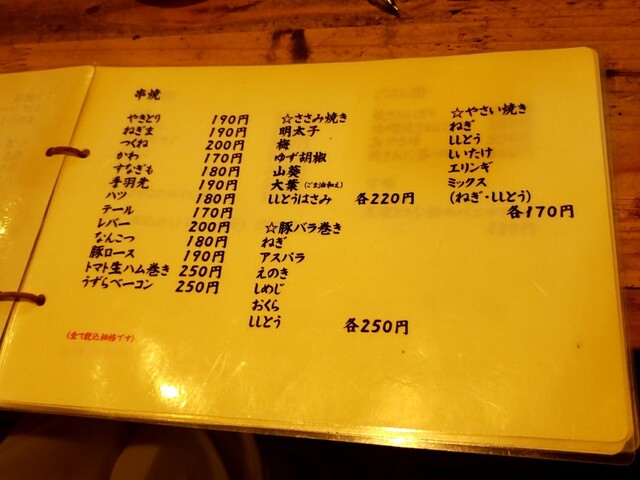 串焼
やきとり 190円
ねぎま 190円
つくね 200円
かわ 170円
すなぎも 180円
手羽先 190円
ハツ 180円
テール 170円
レバー 200円
なんこつ 180円
豚ロース 190円
トマト生ハム巻き 250円
うずらベーコン 250円
(全て税込価格です)
☆ささみ焼き
明太子
梅
ゆず胡椒
山葵
大葉(ごま油和え)
ししとうはさみ 各220円
☆豚バラ巻き
ねぎ
アスパラ
えのき
しめじ
おくら
ししとう 各250円
☆やさい焼き
ねぎ
ししとう
しいたけ
エリンギ
ミックス
(ねぎ・ししとう)
各170円